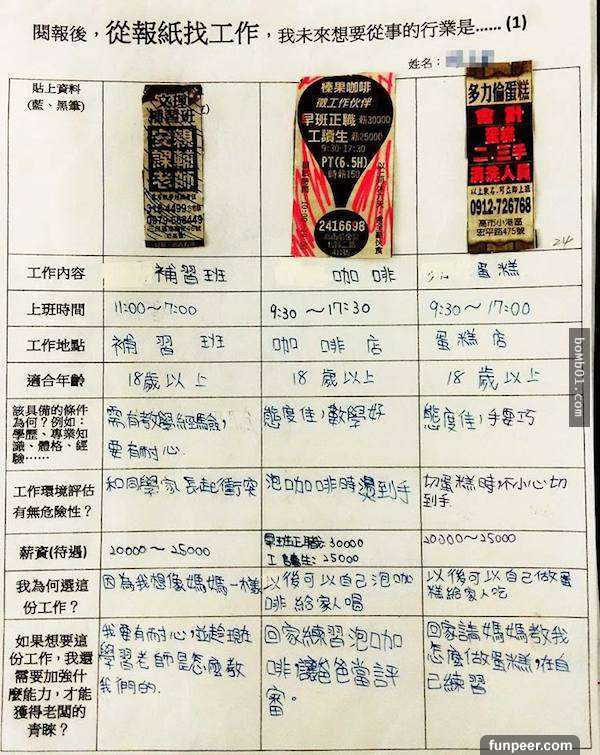 閱報後，從報紙找工作，我未來想要從事的行業是...... (1)
姓名：
貼上資料
(藍、黑筆)
文理
補習班
安親
課輔
老師
榛果咖啡
徵工作伙伴
早班正職 薪30000
工讀生 薪25000
9:30-17:30
PT(6.5H)
時薪150
2416698
多力倫蛋糕
會計
二、三手
清潔人員
以上數名.可立即上班
0912-726768
高市小港區
宏平路475號
24
工作內容 補習班 咖啡 蛋糕
上班時間 11:00～7:00 9:30～17:30 9:30～17:00
工作地點 補習班 咖啡店 蛋糕店
適合年齡 18歲以上 18歲以上 18歲以上
該具備的條件
為何？例如：
學歷、專業知
識、體格、經
驗......
需有教學經驗，
要有耐心.
態度佳，數學好
態度佳，手要巧
工作環境評估
有無危險性？
和同學家長起衝突
泡咖啡時燙到手
切蛋糕時不小心切
到手.
薪資(待遇)
20000～25000
早班正職：30000
工讀生：25000
20000～25000
我為何選這
份工作？
因為我想像媽媽一樣
以後可以自己泡咖
啡給家人喝
以後可以自己做蛋
糕給家人吃
如果想要這
份工作，我還
需要加強什
麼能力，才能
獲得老闆的
青睞？
我要有耐心，並趁現在
學習老師是怎麼教
我們的.
回家練習泡咖
啡讓爸爸當評
審。
回家請媽媽教我
怎麼做蛋糕，在自
己練習
bomb01.com
funpeer.com